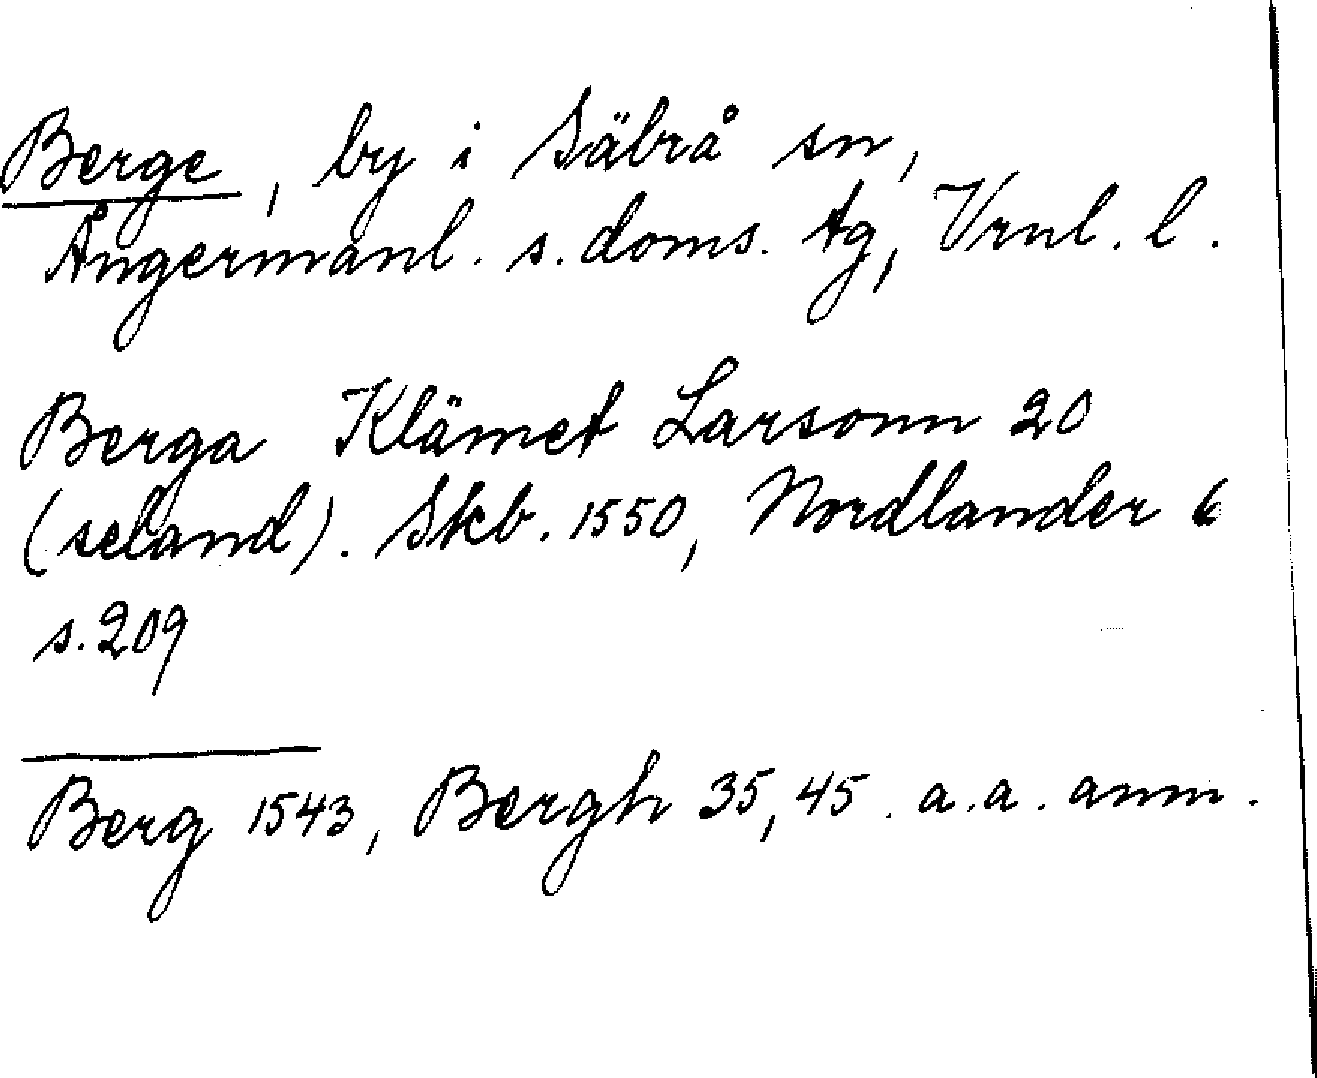 Berge, by i Säbrå sn,
Ångermanl. s. doms. tg, Vrnl. l.
Berga Klämet Larsonn 20
(seland). Skb. 1550, Nordlander 6
s. 209
Berg 1543, Bergh 35, 45. a. a. anm.